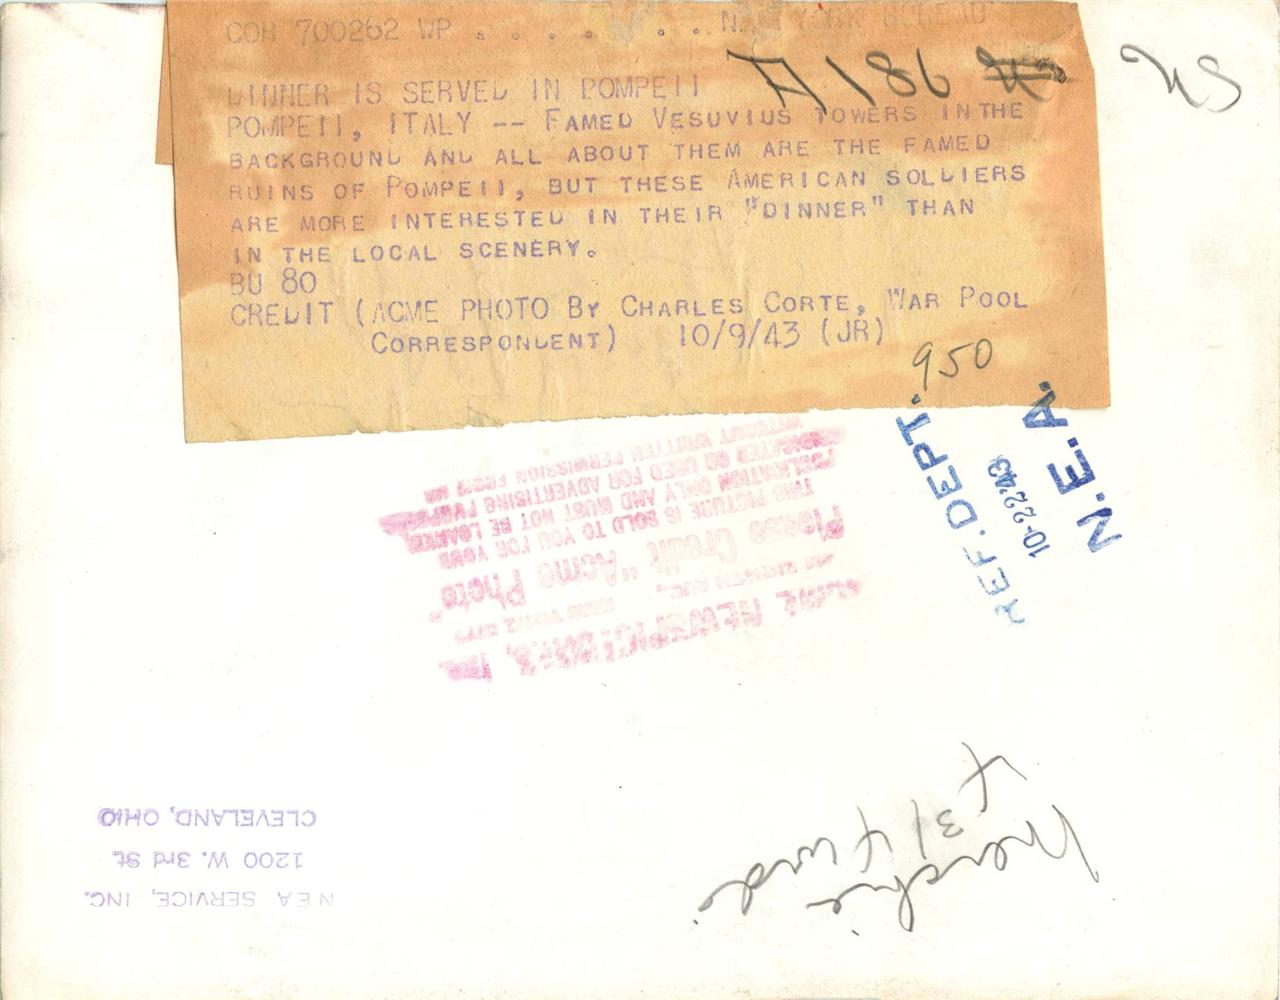 COR 700262 WP . . . . . . . NEW YORK BUREAU
DINNER IS SERVED IN POMPEII
A186
POMPEII, ITALY -- FAMED VESUVIUS TOWERS IN THE
BACKGROUND AND ALL ABOUT THEM ARE THE FAMED
RUINS OF POMPEII, BUT THESE AMERICAN SOLDIERS
ARE MORE INTERESTED IN THEIR "DINNER" THAN
IN THE LOCAL SCENERY.
BU 80
CREDIT (ACME PHOTO BY CHARLES CORTE, WAR POOL
CORRESPONDENT) 10/9/43 (JR)
950
REF. DEPT.
10-22-43
N.E.A.
ACME NEWSPICTURES, INC.
NEW YORK CITY
Please Credit "Acme Photo"
THIS PICTURE IS SOLD TO YOU FOR YOUR
PUBLICATION ONLY AND MUST NOT BE LOANED,
SYNDICATED OR USED FOR ADVERTISING PURPOSES
WITHOUT WRITTEN PERMISSION FROM US
4
3/4 wide
NEA SERVICE, INC.
1200 W. 3rd St.
CLEVELAND, OHIO